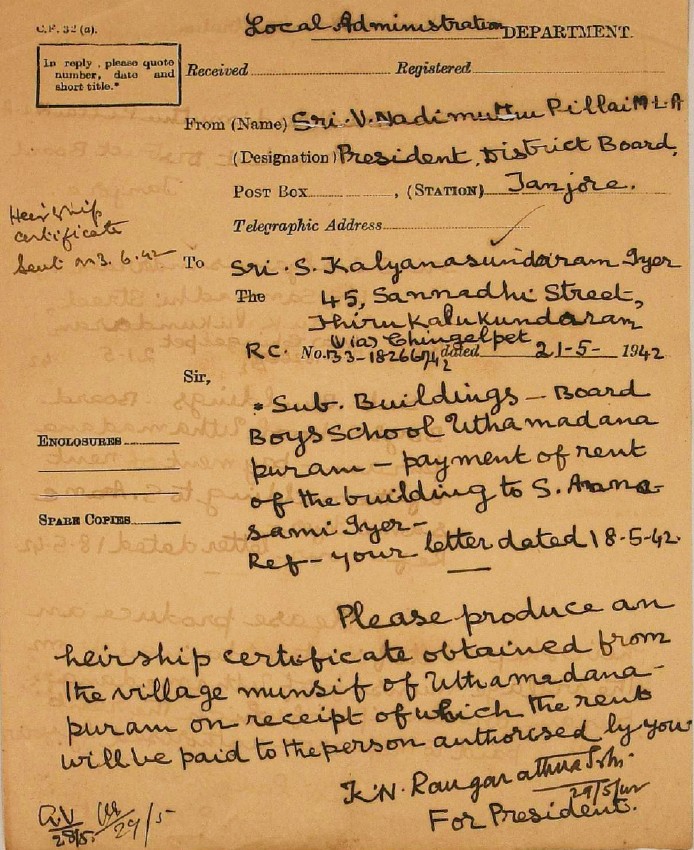 C.F. 32 (a).
Local Administration DEPARTMENT.
In reply, please quote
number, date and
short title.*
Received Registered
From (Name) Sri. V. Nadimuttu Pillai M.L.A
(Designation) President, District Board,
Post Box , (Station) Tanjore.
Telegraphic Address
Heirship
certificate
Sent on 3.6.42
To Sri. S. Kalyanasundaram Iyer
The 45, Sannadhi Street,
Thirukalukundaram
(via) Chingelpet
R.C. No. dated 21-5- 1942
Sir,
* Sub. Buildings – Board
Boys School Uthamadana
puram – payment of rent
of the building to S.
sami Iyer –
Ref – your letter dated 18-5-42.
Enclosures
Spare Copies
Please produce an
heirship certificate obtained from
the village munsif of Uthamadana-
puram on receipt of which the rent
will be paid to the person authorised by you
K.N.
29/5/42
For President.
28/5 29/5